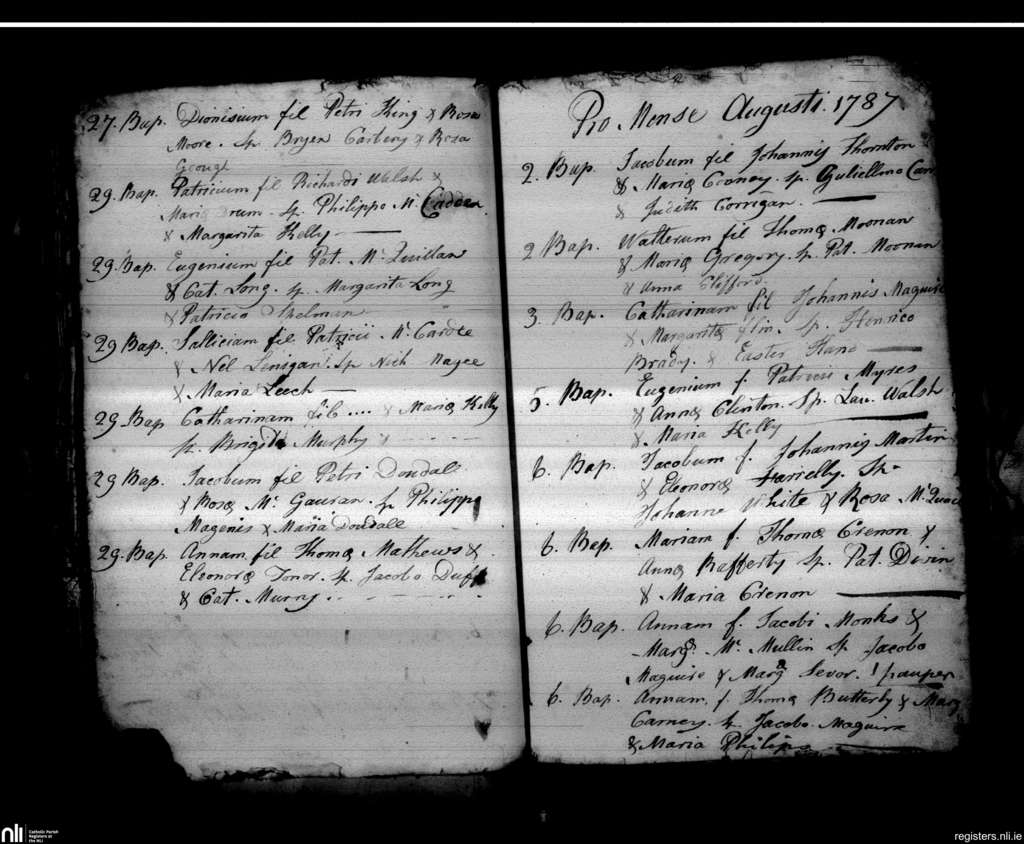 27. Bap. Dionisium fil Petri King & Rosa
Moore. Sp. Bryen Carbery & Rosa
29. Bap. Patricium fil Richardi Walsh &
Maria Sp. Philippo Mc. Cadden.
& Margarita Kelly
29. Bap. Eugenium fil Pat. Mc. Quillan
& Cat. Long. Sp. Margarita Long
& Patricio Spelman
29 Bap. Salliciam fil Patricii Mc. Cardee
& Nel Linigan. Sp Nich Magee
& Maria Leech
29 Bap Catharinam fil .... & Mariæ Kelly
Sp. Brigida Murphy
29 Bap. Jacobum fil Petri Doudall
& Rosæ Mc. Gauran. Sp Philippo
Magenis & Maria Doudalle
29. Bap. Annam fil Thomæ Mathews &
Eleonoræ Sp. Jacobo Duff
& Cat. Murry.
Pro Mense Augusti. 1787
2. Bap. Jacobum fil Johannis Thornton
& Mariæ Cooney. Sp. Gulielmo
& Judith Corrigan.
2 Bap. Walterum fil Thomæ Moonan
& Mariæ Gregory. Sp. Pat. Moonan
& Anna Clifford.
3. Bap. Catharinam fil Johannis Maguire
& Margaritæ Sp. Henrico
Brady. & Easter
5. Bap. Eugenium f. Patricii Myres
& Annæ Clinton. Sp. Lau. Walsh
& Maria Kelly
6. Bap. Jacobum f. Johannis Martin
& Eleonoræ Farrelly. Sp.
Johanne White & Rosa
6. Bap. Mariam f. Thomæ Crenon &
Annæ Rafferty Sp. Pat.
& Maria Crenon
6. Bap. Annam f. Jacobi Monks &
Margæ. Mc. Mullin Sp. Jacobo
Maguire & Marga Sevor. ! pauper
6. Bap. Annam. f. Thomæ Butterly & Marg
Carney. Sp. Jacobo Maguire
& Maria Philips
nli
Catholic Parish
Registers at
the NLI
registers.nli.ie